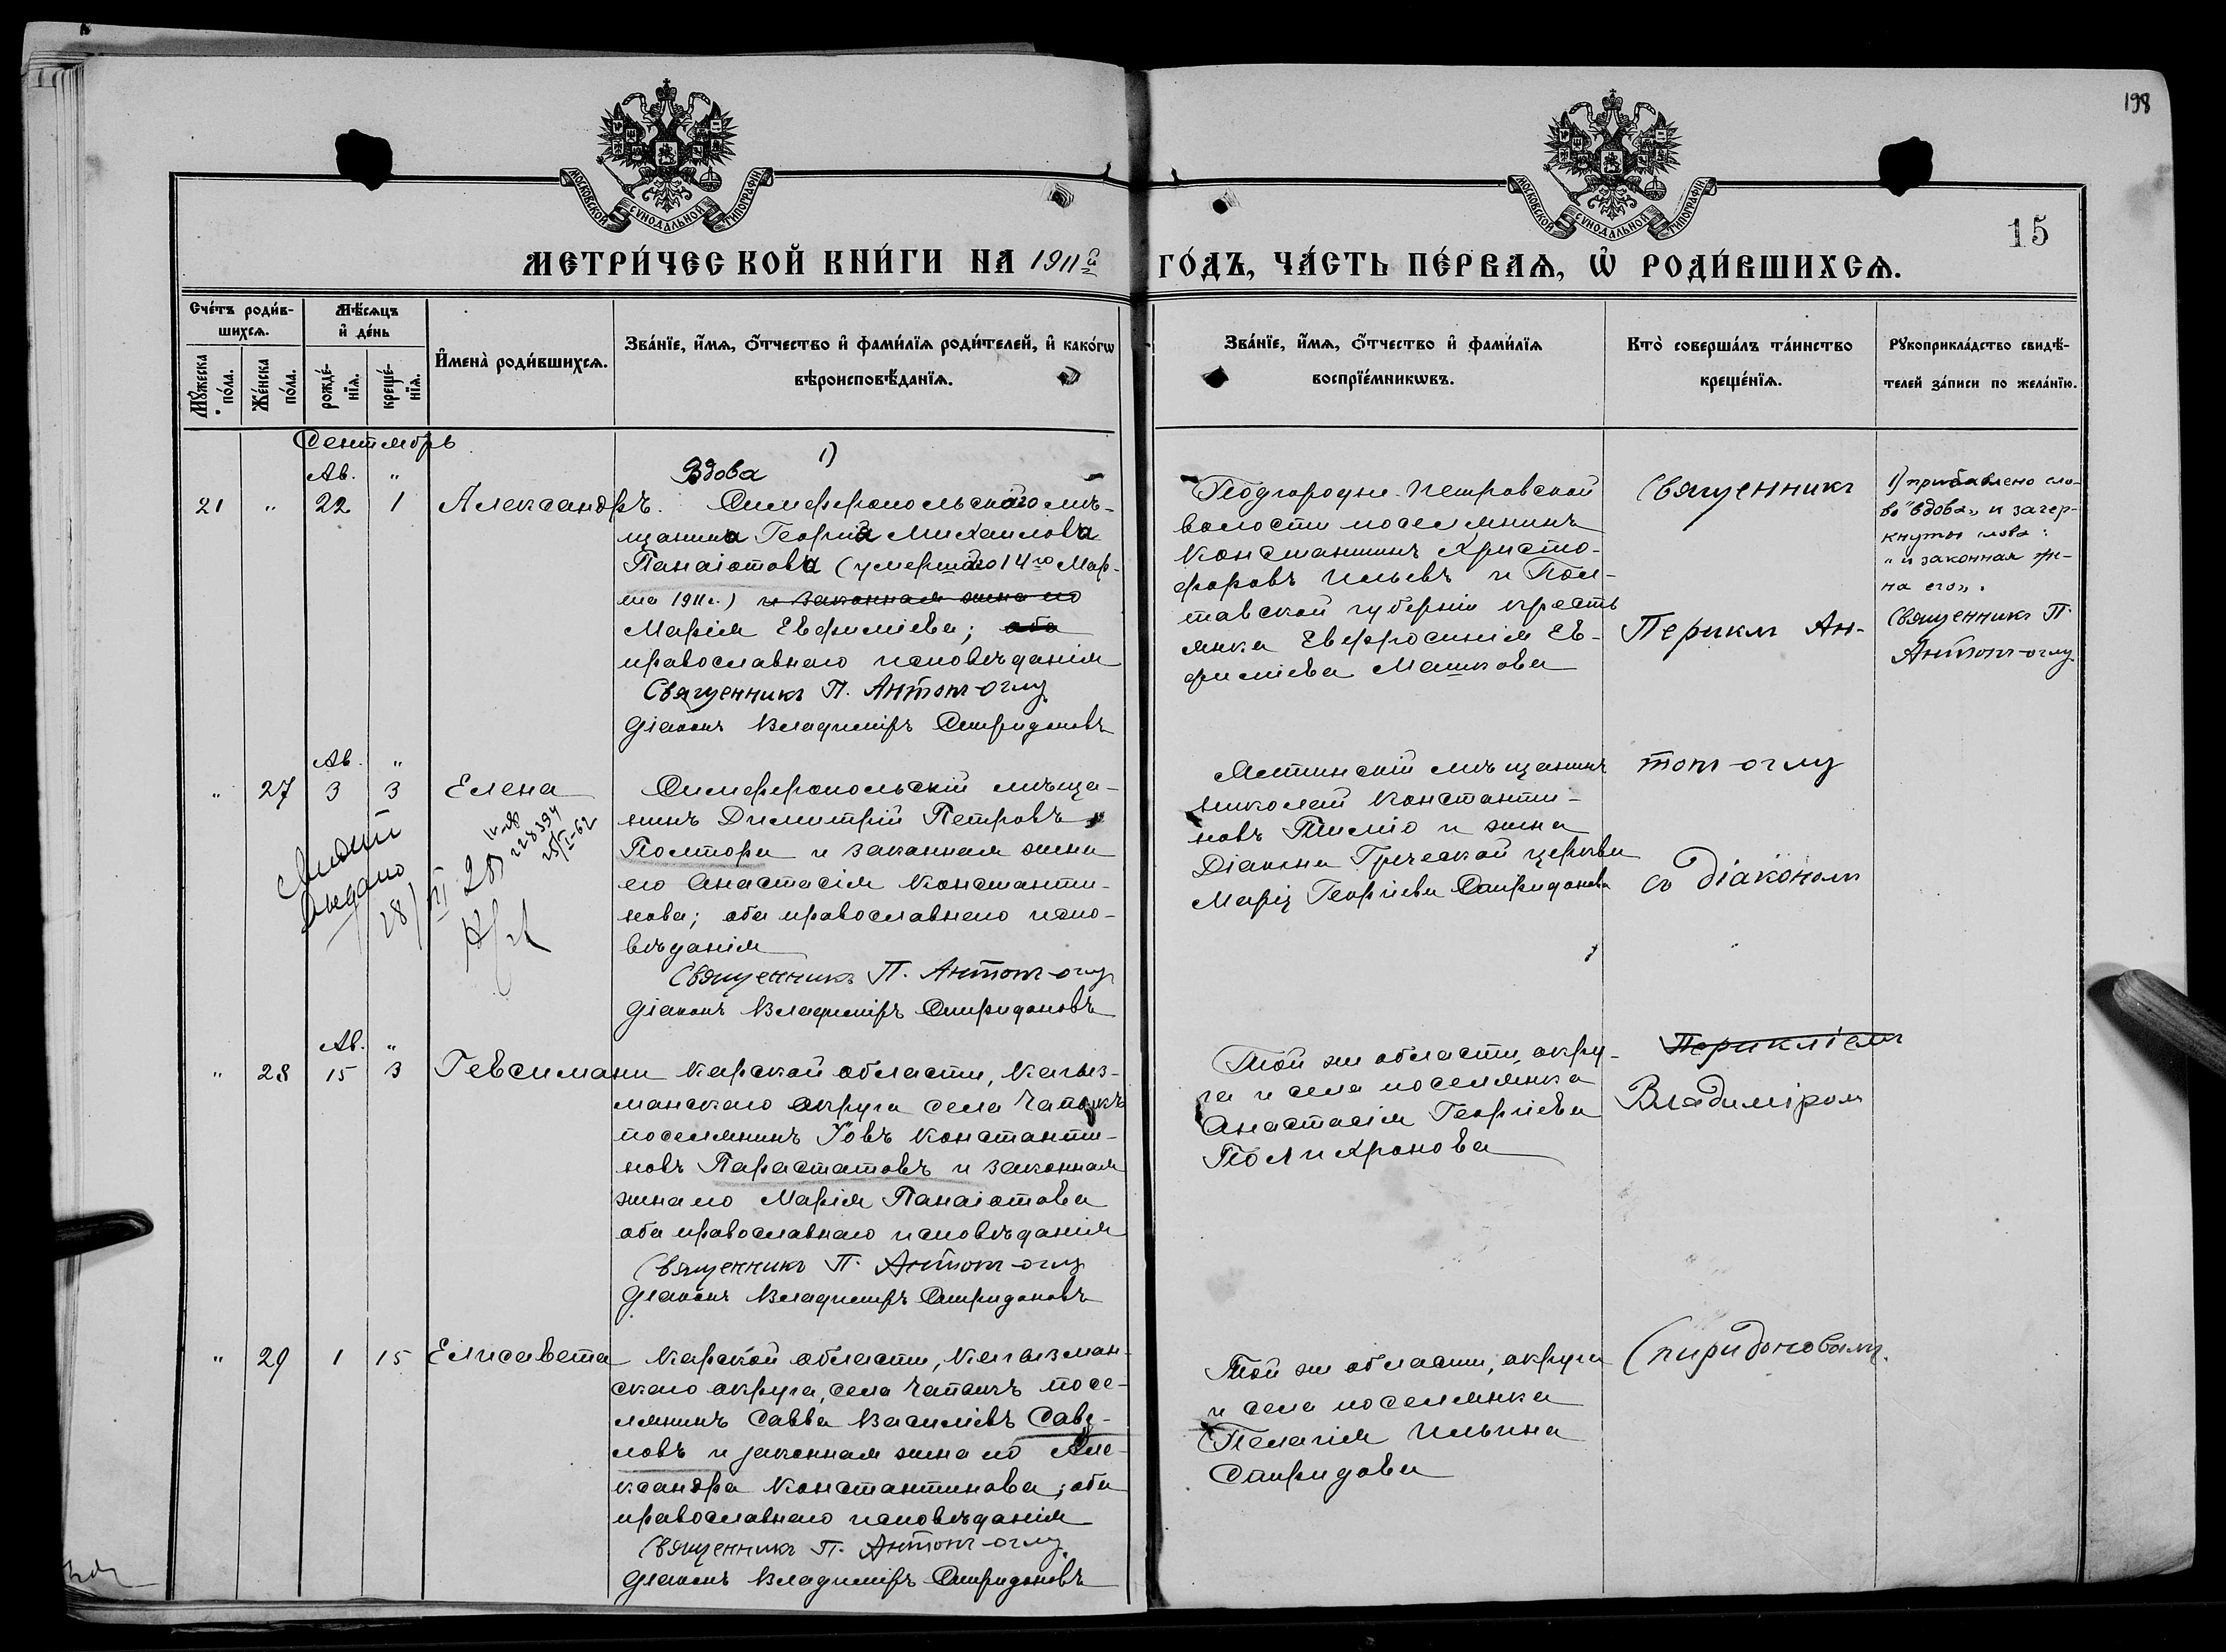 198
15
МОСКОВСКОЙ СѴНОДАЛЬНОЙ ТИПОГРАФІИ
МОСКОВСКОЙ СѴНОДАЛЬНОЙ ТИПОГРАФІИ
МЕТРИ́ЧЕСКОЙ КНИ́ГИ НА 1911й ГО́ДЪ, ЧА́СТЬ ПЕ́РВАѦ, Ѡ҆ РОДИ́ВШИХСѦ.
Сче́тъ роди́в-
шихсѧ.
Мꙋ́жеска по́ла.
Же́нска по́ла.
Мѣ́сѧцъ
и҆ де́нь
рожде́-
нїѧ.
креще́-
нїѧ.
И҆мена̀ роди́вшихсѧ.
Зва́нїе, и҆́мѧ, ѻ҆́тчество и҆ фами́лїѧ роди́телей, и҆ како́гѡ
вѣроисповѣ́данїѧ.
Зва́нїе, и҆́мѧ, ѻ҆́тчество и҆ фами́лїѧ
воспрїе́мникѡвъ.
Кто̀ соверша́лъ та́инство
креще́нїѧ.
Рꙋкоприкла́дство свидѣ́-
телей за́писи по жела́нїю.
Сентябрь
Ав. "
21 " 22 1 Александръ.
Вдова 1)
Симферопольскаго мѣ-
щанина Георгія Михаилова
Панаіотова (умершаго 14го Мар-
та 1911 г.) и законная жена его
Марія Евфиміева; оба
православнаго исповѣданія
Священникъ П. Антонъ-оглу
Діаконъ Владиміръ Спиридоновъ
Подгородне-Петровской
волости поселянинъ
Константинъ Христо-
форовъ Ильевъ и Пол-
тавской губерніи кресть
янка Евфросинія Ев-
фиміева Машкова
Священникъ
Периклъ Ан-
1) прибавлено сло-
во "вдова" и зачер-
кнуты слова:
"и законная же-
на его".
Священникъ П.
Антонъ-оглу
Ав. "
" 27 3 3 Елена
выдано
28/VI 28
228394
25/I-62
Симферопольскій мѣща-
нинъ Димитрій Петровъ
Полтора и законная жена
его Анастасія Константи-
нова; оба православнаго испо-
вѣданія
Священникъ П. Антонъ-оглу
Діаконъ Владиміръ Спиридоновъ
Ялтинскій мѣщанинъ
Николай Константи-
новъ и жена
Діакона Греческой церкви
Марія Георгіева Спиридонова
тонъ-оглу
съ діакономъ
Ав. "
" 28 15 3 Гевсимани
Карской области, Кагыз-
манскаго округа села Чапыкъ
поселянинъ Іовъ Константи-
новъ Парастатовъ и законная
жена его Марія Панаіотова
оба православнаго исповѣданія
Священникъ П. Антонъ-оглу
Діаконъ Владиміръ Спиридоновъ
Той же области, окру-
га и села поселянка
Анастасія Георгіева
Полихронова
Перикліемъ
Владиміромъ
" 29 1 15 Елисавета
Карской области, Кагызман-
скаго округа, села Чапыкъ посе-
лянинъ Савва Василіевъ Саве-
ловъ и законная жена его Але-
ксандра Константинова; оба
православнаго исповѣданія
Священникъ П. Антонъ-оглу
Діаконъ Владиміръ Спиридоновъ
Той же области, округа
и села поселянка
Пелагія Ильина
Спиридова
Спиридоновымъ.